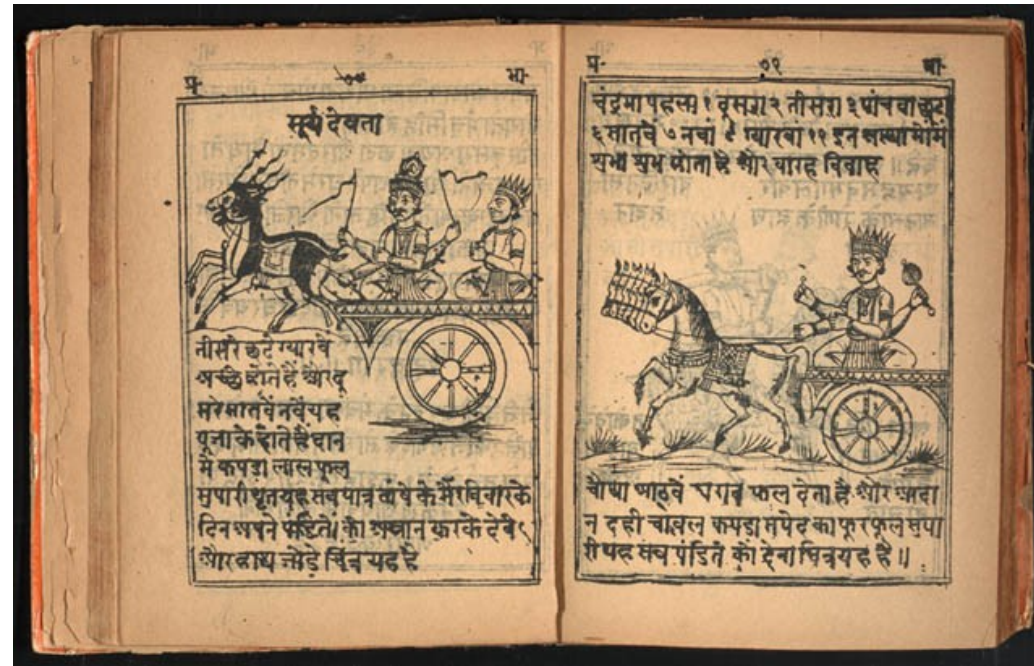 प्र॰ ७० भा॰
सूर्य देवता
तीसरे छटे ग्यारवे
अच्छे होते हैं और दू
सरे सातवें नवें यह
पूजा के होते हैं दान
में कपड़ा लाल फूल
सुपारी घृत यह सब पात्र में रविवार के
दिन अपने पंडितों को करके देवे
और हाथ जोड़े चित्र यह है
प्र॰ ७१ भा॰
चंद्रमा पहला १ दूसरा २ तीसरा ३ पांचवा छटा
६ सातवें ७ नवां ९ ग्यारवा ११ इन में
शुभ होता है और बारह
चौथा आठवें फल देता है और
न दही चावल कपड़ा सपेद का फूल सुपा
री यह सब पंडित को देवा चित्र यह है॥